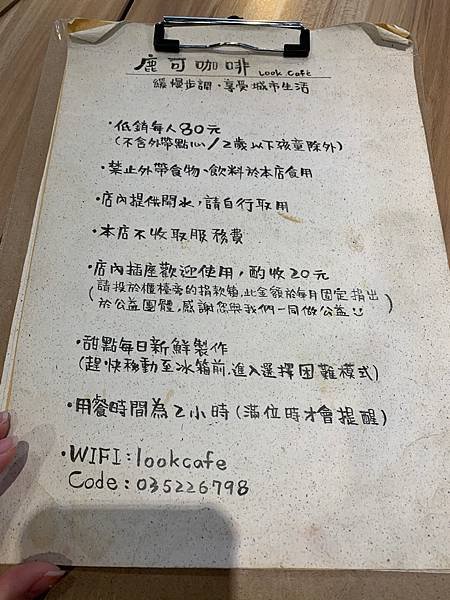 鹿可咖啡 Look Cafe
緩慢步調·享受城市生活
·低銷每人80元
(不含外帶點心/2歲以下孩童除外)
·禁止外帶食物、飲料於本店食用
·店內提供開水,請自行取用
·本店不收取服務費
·店內插座歡迎使用,酌收20元
(請投於櫃檯旁的捐款箱,此金額於每月固定捐出
於公益團體,感謝您與我們一同做公益)
·甜點每日新鮮製作
(趕快移動至冰箱前,進入選擇困難模式)
·用餐時間為2小時(滿位時才會提醒)
·WIFI:lookcafe
Code:035226798